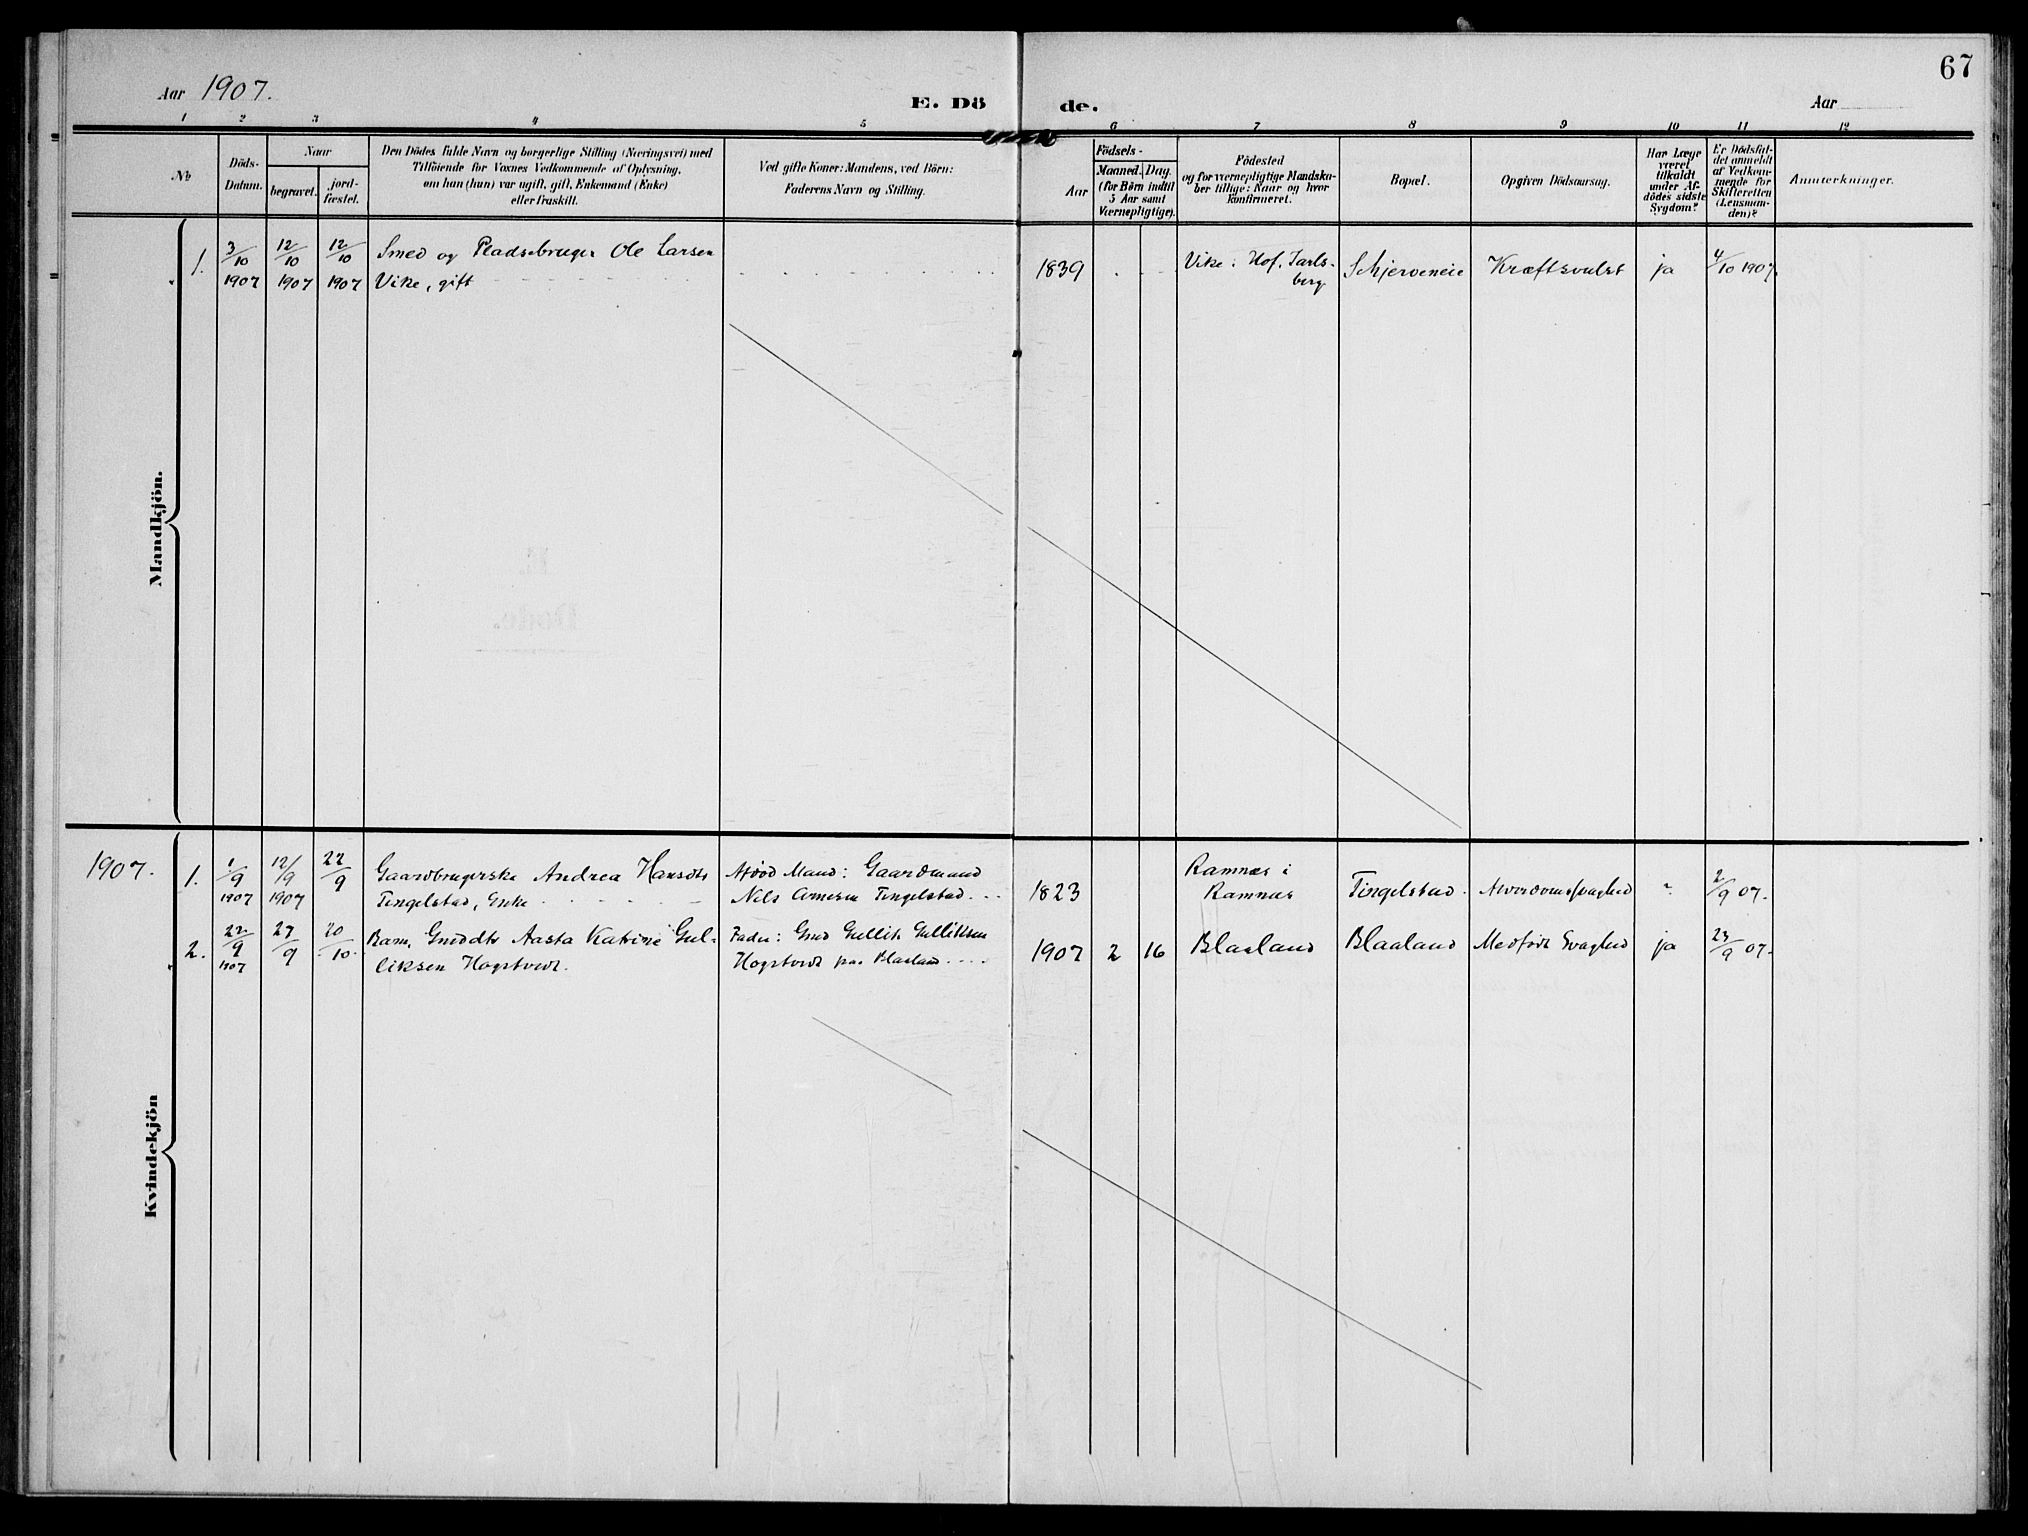 67
Aar 1907.
E. Dö de.
Aar
1 2 3 4 5 6 7 8 9 10 11 12
No
Döds-
Datum.
Naar
begravet.
jord-
fæstet.
Den Dödes fulde Navn og borgerlige Stilling (Næringsvei) med
Tilföiende for Voxnes Vedkommende af Oplysning,
om han (hun) var ugift, gift, Enkemand (Enke)
eller fraskilt.
Ved gifte Koner: Mandens, ved Börn:
Faderens Navn og Stilling.
Födsels-
Aar
Maaned. Dag.
(for Börn indtil
5 Aar samt
Værnepligtige).
Födested
og for værnepligtige Mandska-
ber tillige: Naar og hvor
konfirmeret.
Bopæl.
Opgiven Dödsaarsag.
Har Læge
været
tilkaldt
under Af-
dödes sidste
Sygdom?
Er Dödsfal-
det anmeldt
af Vedkom-
mende for
Skifteretten
(Lensman-
den)?
Anmerkninger.
Mandkjön.
1. 3/10 1907 12/10 1907 12/10 1907 Smed og Pladsebruger Ole Larsen
Vike, gift
1839 Vike i Hof, Jarls-
berg
Schjerveneie Kræftsvulst ja 4/10 1907.
Kvindekjön
1907.
1. 1/9 1907 12/9 1907 22/9 Gaardbrugerske Andrea Hansdtr
Tingelstad, Enke
Afdød Mand: Gaardmand
Nils Arnesen Tingelstad
1823 Ramnæs i
Ramnæs
Tingelstad. 2/9 07.
2. 22/9 1907 27/9 20/10 Barn, Aasta Katrine Gul-
liksen Hogstvedt.
Fader: Gullik Gulliksen
Hogstvedt paa Blaaland
1907 2 16 Blaaland Blaaland Medfødt Svaghed ja 23/9 07.